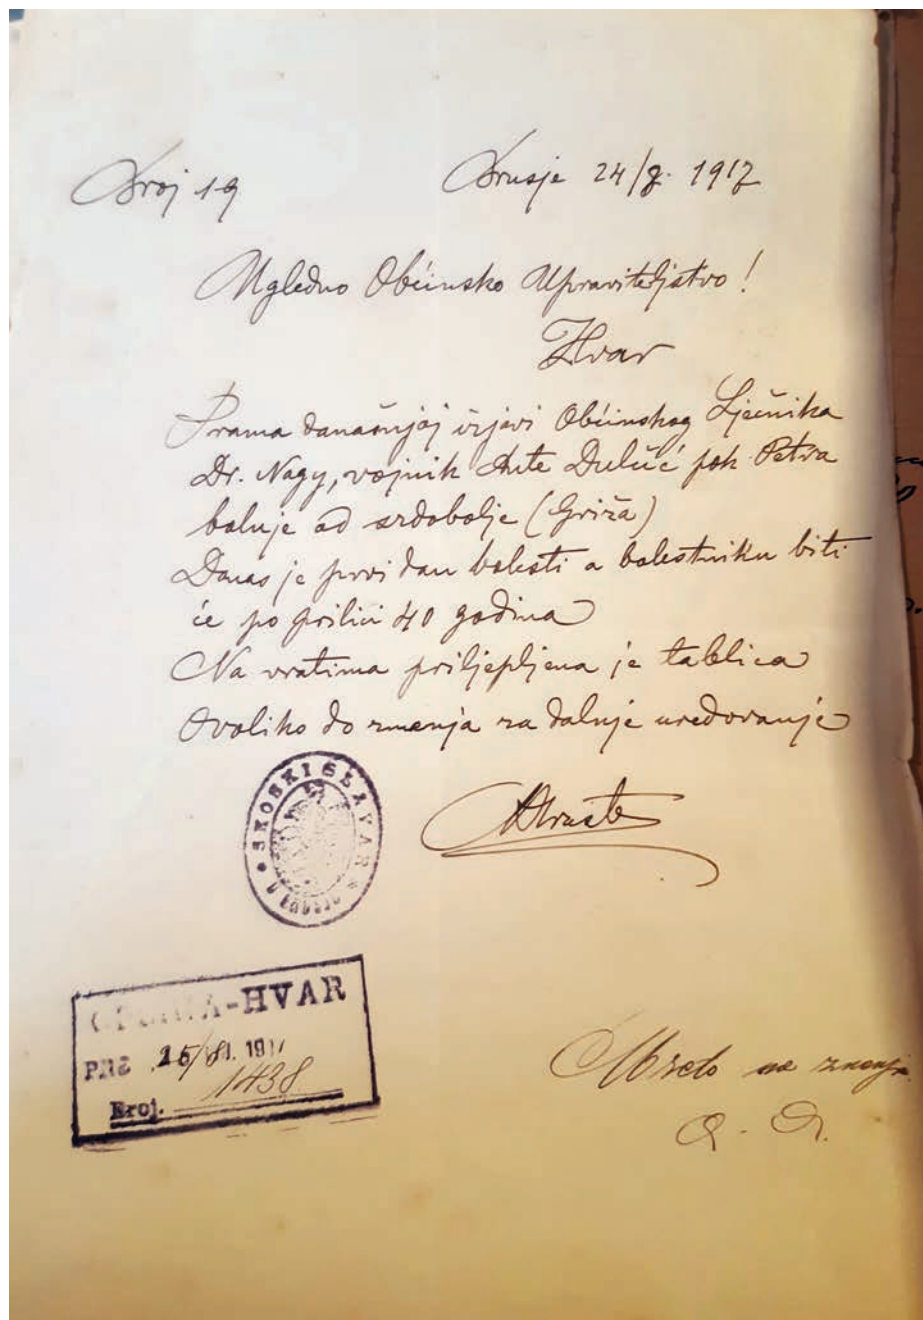 Broj 19
Brusje 24/8. 1917
Ugledno Obćinsko Upraviteljstvo!
Hvar
Prama današnjoj izjavi Obćinskog Lječnika
Dr. Nagy, vojnik Ante Dulčić pok Petra
boluje od srdobolje (Griža)
Danas je prvi dan bolesti a bolestniku biti
će po prilici 40 godina
Na vratima priljepljena je tablica
Ovoliko do znenja za dalnje uredovanje
* SEOSKI GLAVAR *
U BRUSJU
OPĆINA-HVAR
PRS 25/8. 191
Broj. 1438
Uzeto na znanje